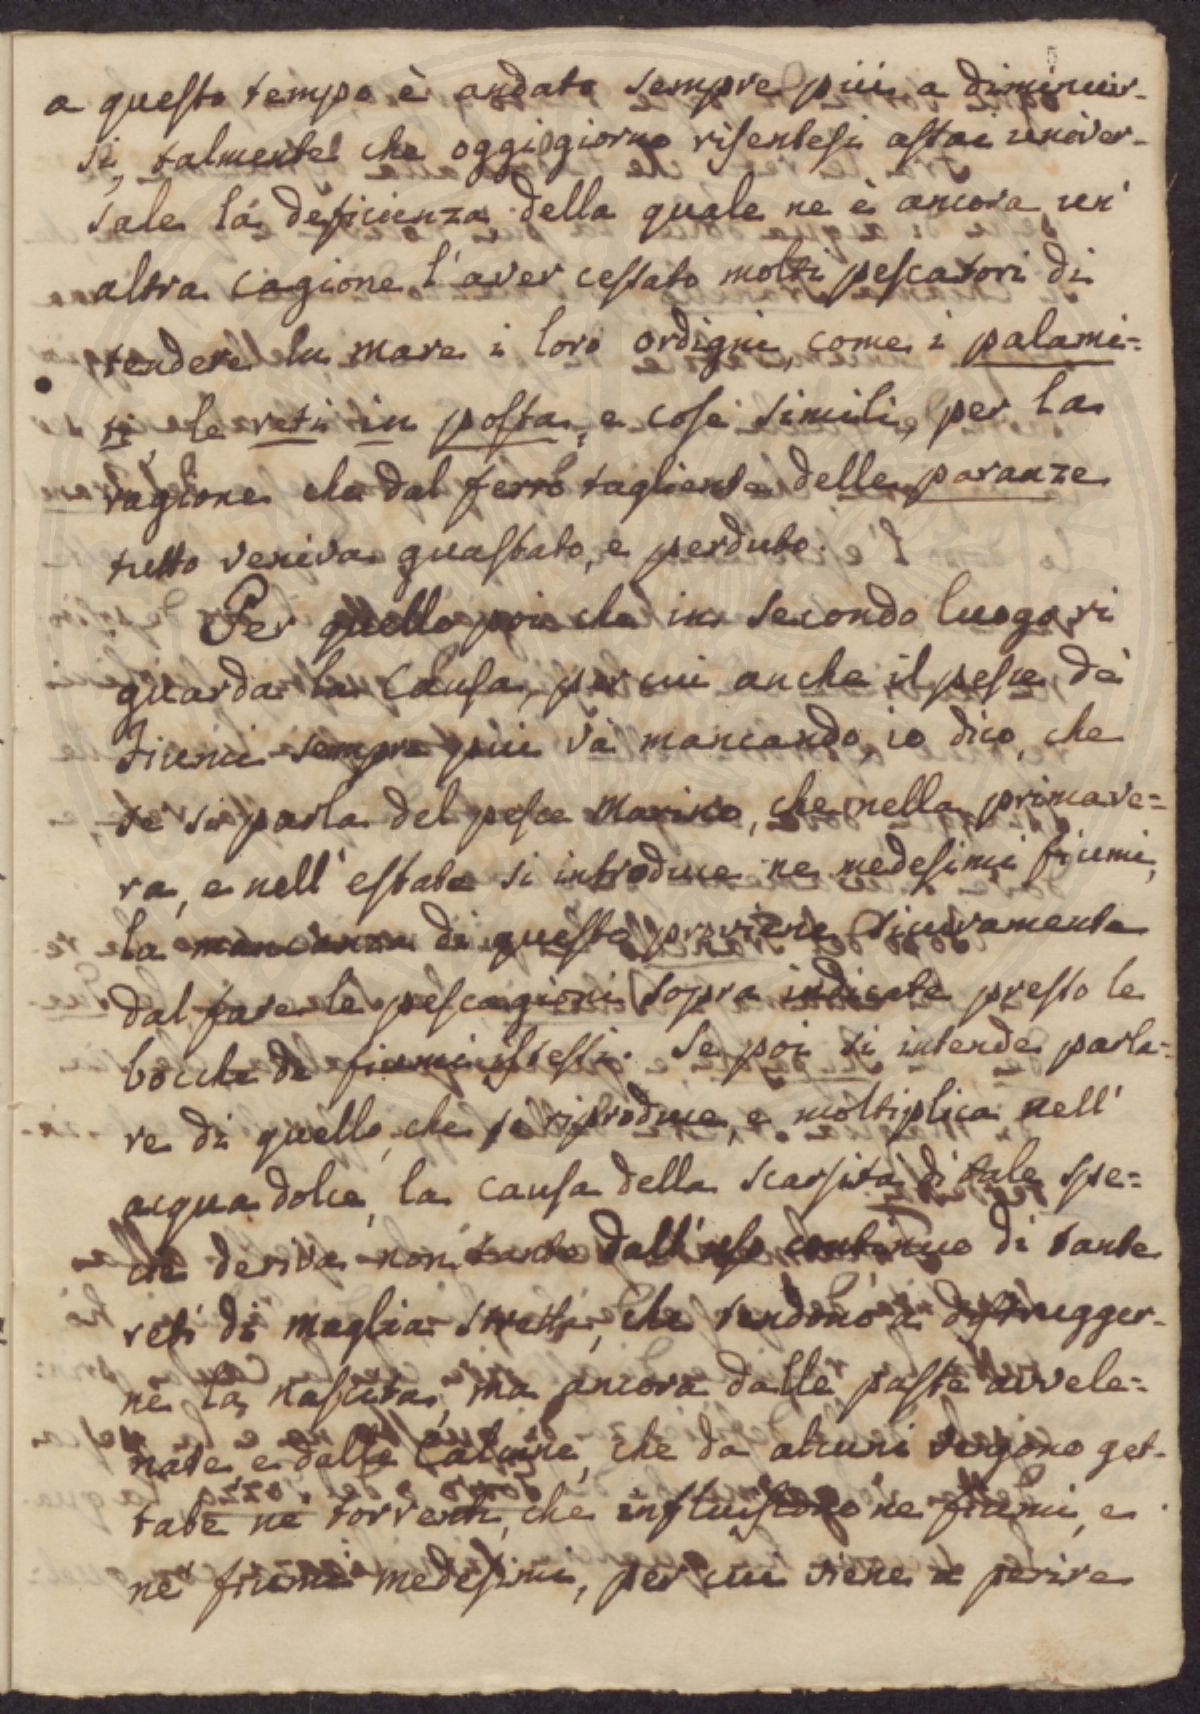 5
a questo tempo è andato sempre più a diminuir-
si, talmente che oggigiorno risentesi assai univer-
sale la deficienza della quale ne è ancora un'
altra cagione l'aver cessato molti pescatori di
tendere in mare i loro ordigni, come i palami-
ti, le reti in posta, e cose simili, per la
ragione che dal ferro tagliente delle paranze
tutto veniva guastato, e perduto.
Per quello poi che in secondo luogo ri
guarda la causa, per cui anche il pesce de'
Fiumi sempre più và mancando, io dico, che
se si parla del pesce Marino, che nella primave=
ra, e nell' estate si introduce ne medesimi fiumi,
la mancanza di questo proviene sicuramente
dal fare le pescagioni sopra indicate presso le
bocche de fiumi istessi. Se poi si intende parla=
re di quello, che si riproduce, e moltiplica nell'
acqua dolce, la causa della scarsità di tale spe=
cie deriva non tanto dall'uso continuo di tante
reti di maglia stretta, che tendono a distrugger-
ne la nascita, ma ancora dalle paste avvele=
nate e dalle Calcine, che da alcuni vengono get-
tate ne' torrenti, che influiscono ne fiumi, e
ne' fiumi medesimi, per cui viene a perire